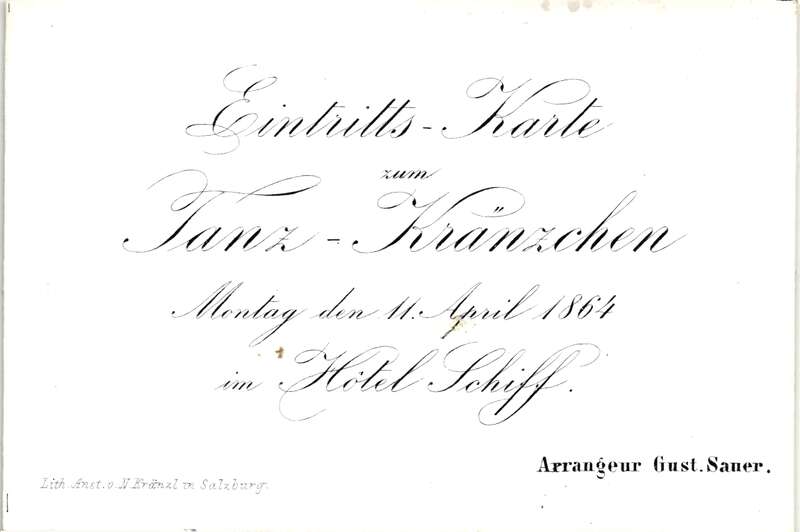 Eintritts-Karte
zum
Tanz-Kränzchen
Montag den 11. April 1864
im Hôtel Schiff.
Arrangeur Gust. Sauer.
Lith. Anst. v. N Kränzl in Salzburg.